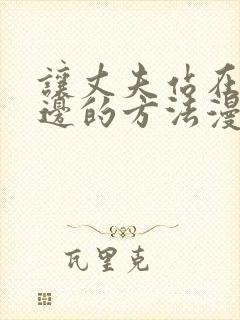 讓丈夫佔在
邊的方法漫
瓦里克